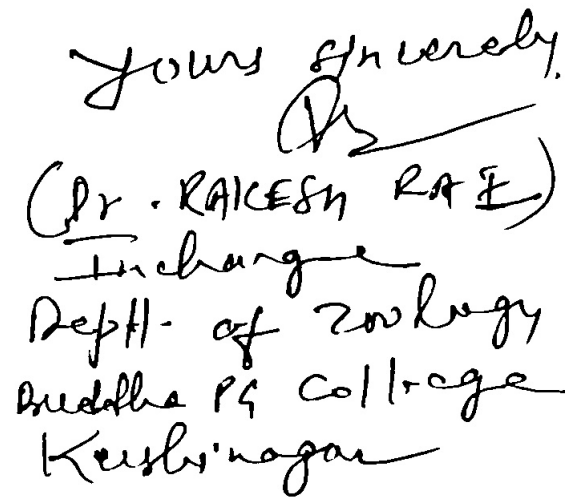 Yours sincerely.
(Dr. RAKESH RAI)
Incharge
Deptt. of Zoology
Buddha PG College
Kushinagar